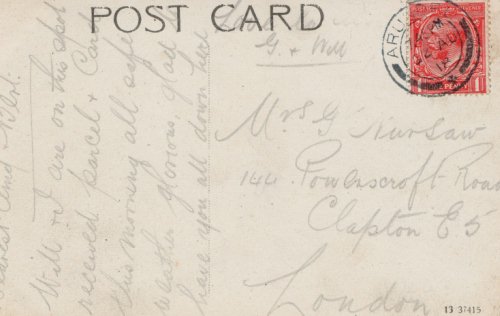 POST CARD
G. + Will
ARU
PENNY
1
Dearest
Will + I are on this spot
received parcel + Card
this morning all safe
weather glorious, glad
have you all down here
Mrs G Nursaw
144 Powerscroft Road
Clapton E5
London
13 37415